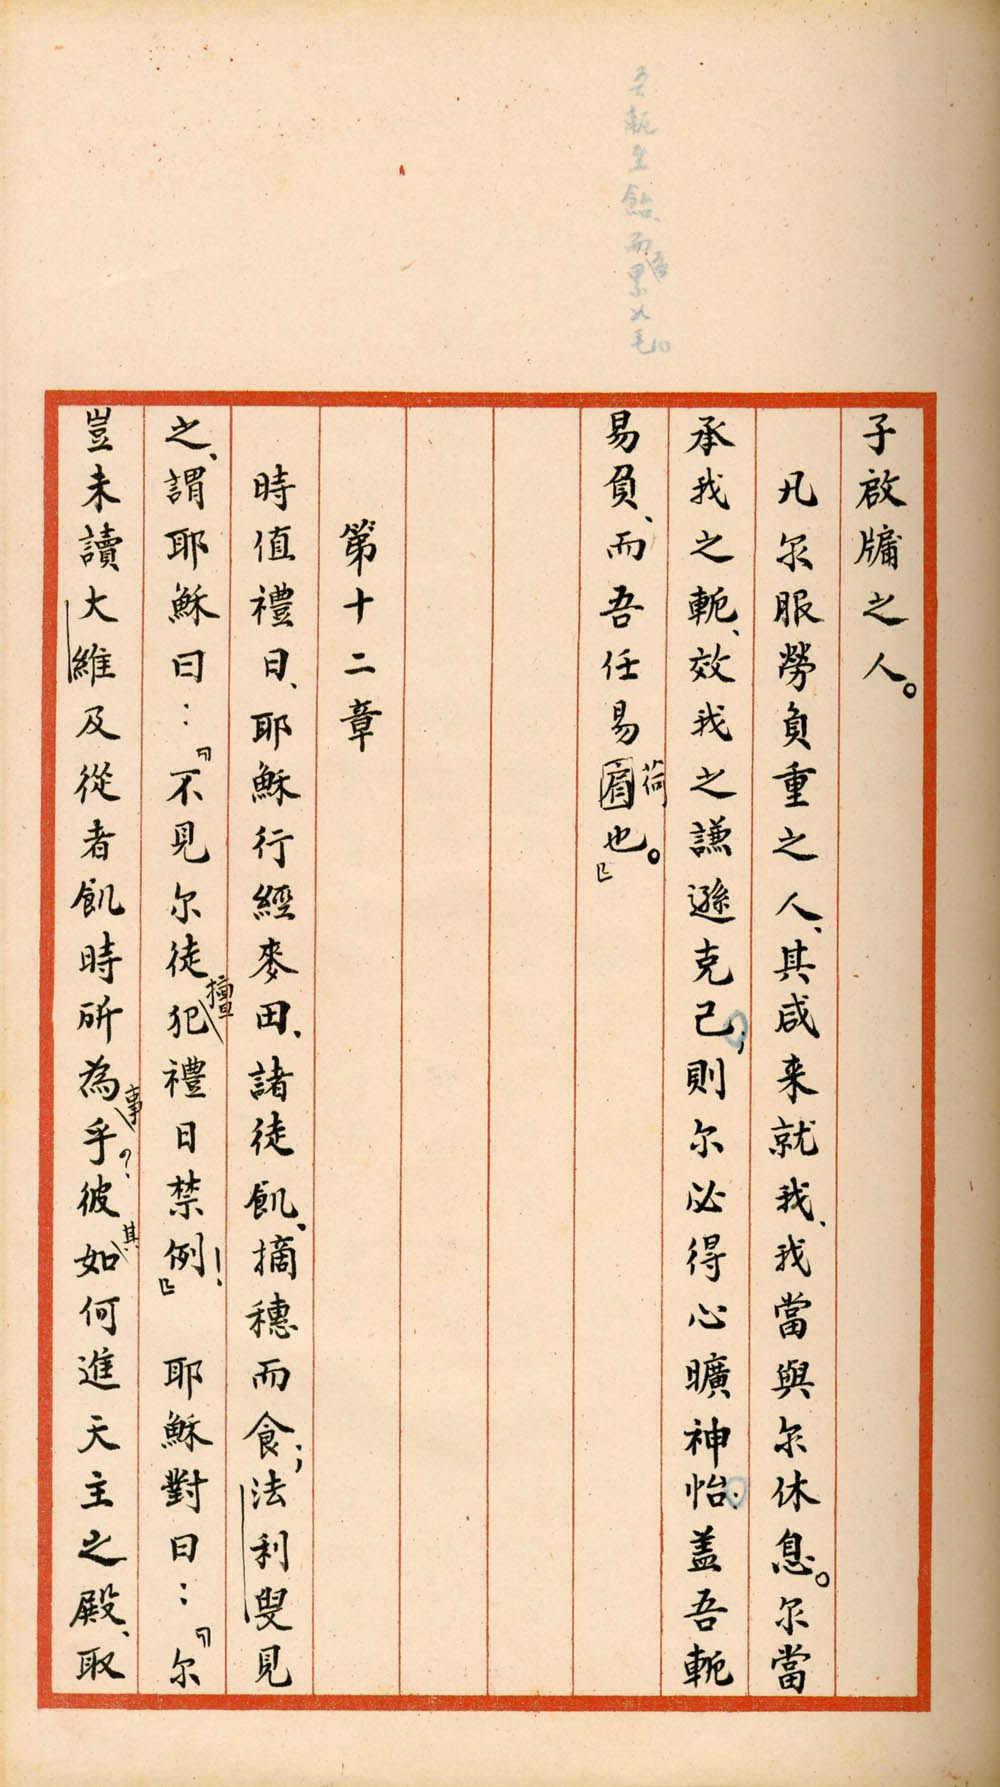 子啟牖之人。
凡尔服勞負重之人、其咸来就我、我當與尔休息。尔當
承我之軛、效我之謙遜克己；則尔必得心曠神怡．蓋吾軛
易負、而吾任易肩荷也。』
第十二章
時值禮日、耶穌行經麥田、諸徒飢、摘穗而食；法利叟見
之、謂耶穌曰：『不見尔徒擅犯禮日禁例！』耶穌對曰：『尔
豈未讀大維及從者飢時所為事乎？彼其如何進天主之殿、取